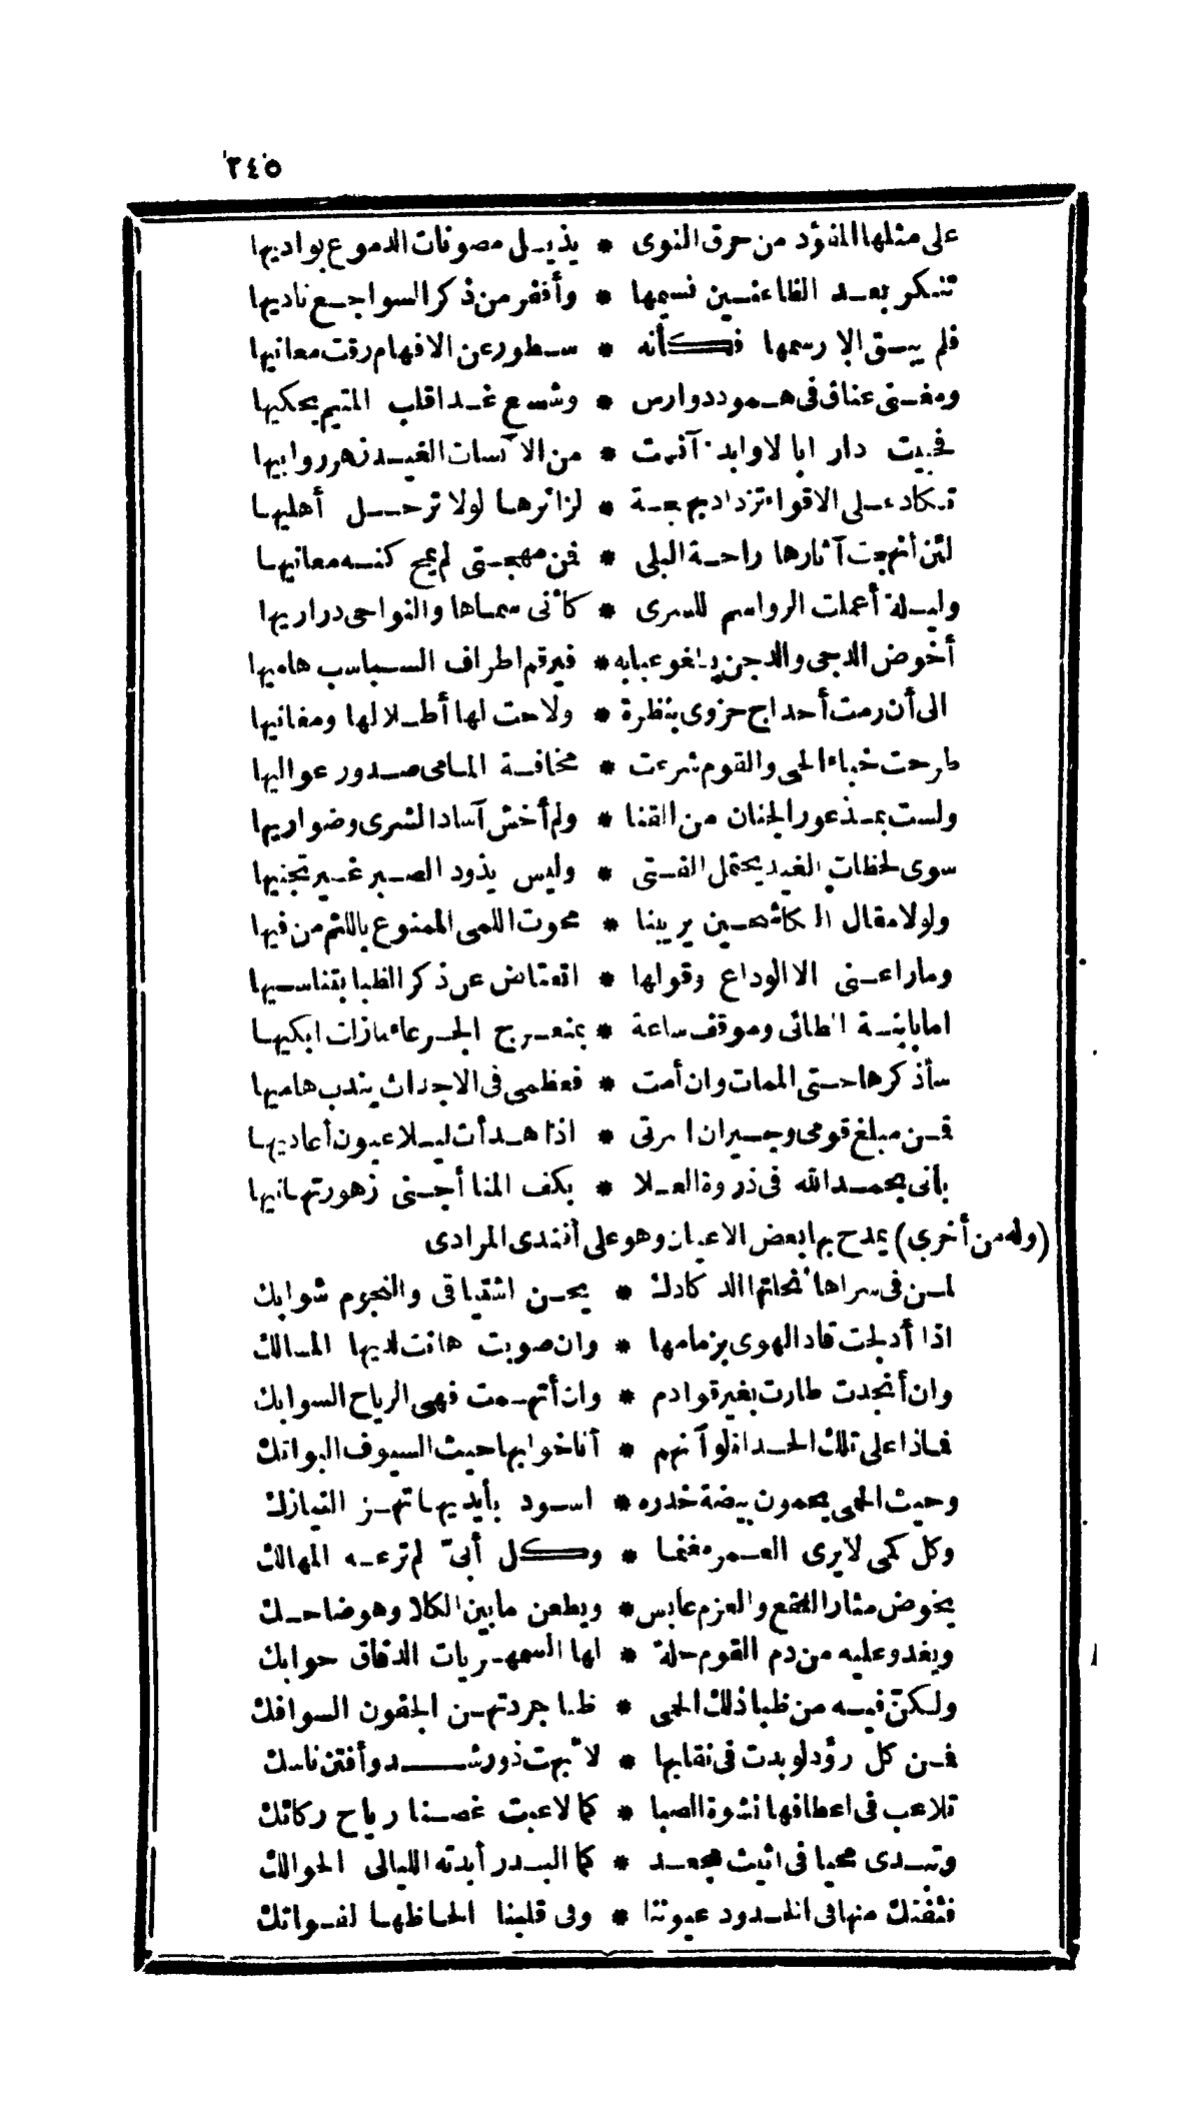 ٢٤٥
على مثلها المفؤد من حرق النوى * يذيل مصونات الدموع بواديها
تنكر بعد الظاعنين نسيمها * وأقفر من ذكر السواجع ناديها
فلم يبق الا رسمها فكأنه * سطور عن الافهام رقت معانيها
ومغنى عناق فى همود دوارس * وشسع غدا قلب المتيم يحكيها
فحييت دار ابالاوابد آنست * من الآنسات الغيد زهر روابيها
تكاد على الاقواء تزداد بهجة * لزائرها لولا ترحل أهليها
لئن أنهجت آثارها راحة البلى * فمن مهجتى لم يمح كنه معانيها
وليلة أعملت الرواسم للسرى * كأنى سماها والنواحى دراريها
أخوض الدجى والدجن يلغو عبابه * فيرقم اطراف السباسب هاميها
الى أن رمت أحداج حزوى بنظرة * ولاحت لها أطلالها ومغانيها
طرحت خباء الحى والقوم شرعت * مخافة المامى صدور عواليها
ولست بمذعور الجنان من القنا * ولم أخش آساد الشرى وضواريها
سوى لحظات الغيد يحتمل الفتى * وليس يذود الصبر غير تجنيها
ولولا مقال الكاشحين يريبنا * محوت اللمى الممنوع باللثم من فيها
وما راعنى الا الوداع وقولها * اتعتاض عن ذكر الظبا بتناسيها
اما يابنة الطائى وموقف ساعة * بمنعرج الجرعاء مازات ابكيها
سأذكرها حتى الممات وان أمت * فعظمى فى الاجداث يندب هاميها
فمن مبلغ قومى وجيران اسرتى * اذا هدأت ليلا عيون أعاديها
بأنى بحمد الله فى ذروة العلا * بكف المنا أجنى زهور تهانيها
(وله من أخرى) يمدح بها بعض الاعيان وهو على أفندى المرادى
لمن فى سراها نحاتها الدكادك * يحن اشتياقى والنجوم شوابك
اذا أدلجت قاد الهوى بزمامها * وان صوبت هانت لديها المسالك
وان أنجدت طارت بغير قوادم * وان أتهمت فهى الرياح السوابك
فماذا على تلك الحداة لو آنهم * أناخوا بها حيث السيوف البواتك
وحيث الحمى يحمون بيضة خدره * اسود بأيديها تهز النيازك
وكل كمى لا يرى العمر مغنما * وكل أبىّ لم ترعه المهالك
يخوض مثار النقع والعزم عابس * ويطعن ما بين الكلا وهو ضاحك
ويغدو عليه من دم القوم حلة * لها السمهريات الدقاق حوابك
ولكنّ فيه من ظبا ذلك الحمى * ظبا جردتهن الجفون السوافك
فمن كل رؤد لو بدت فى نقابها * لأبهت ذو رشد وأفتن ناسك
تلاعب فى اعطافها نشوة الصبا * كما لاعبت غصنا رياح ركائك
وتبدى محيا فى اثيث مجعد * كما البدر أبدته الليالى الحوالك
فتفتك منها فى الخدود عيوننا * وفى قلبنا الحاظها لفواتك